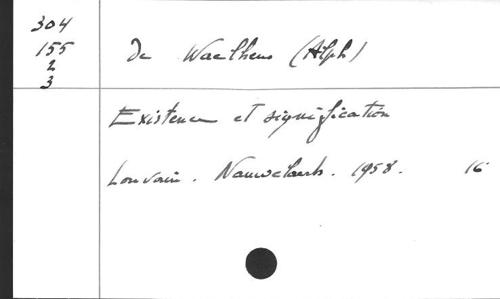 304
155
2
3
De Waelhens (Alph)
Existence et signification
Louvain. Nauwelaerts. 1958. 16